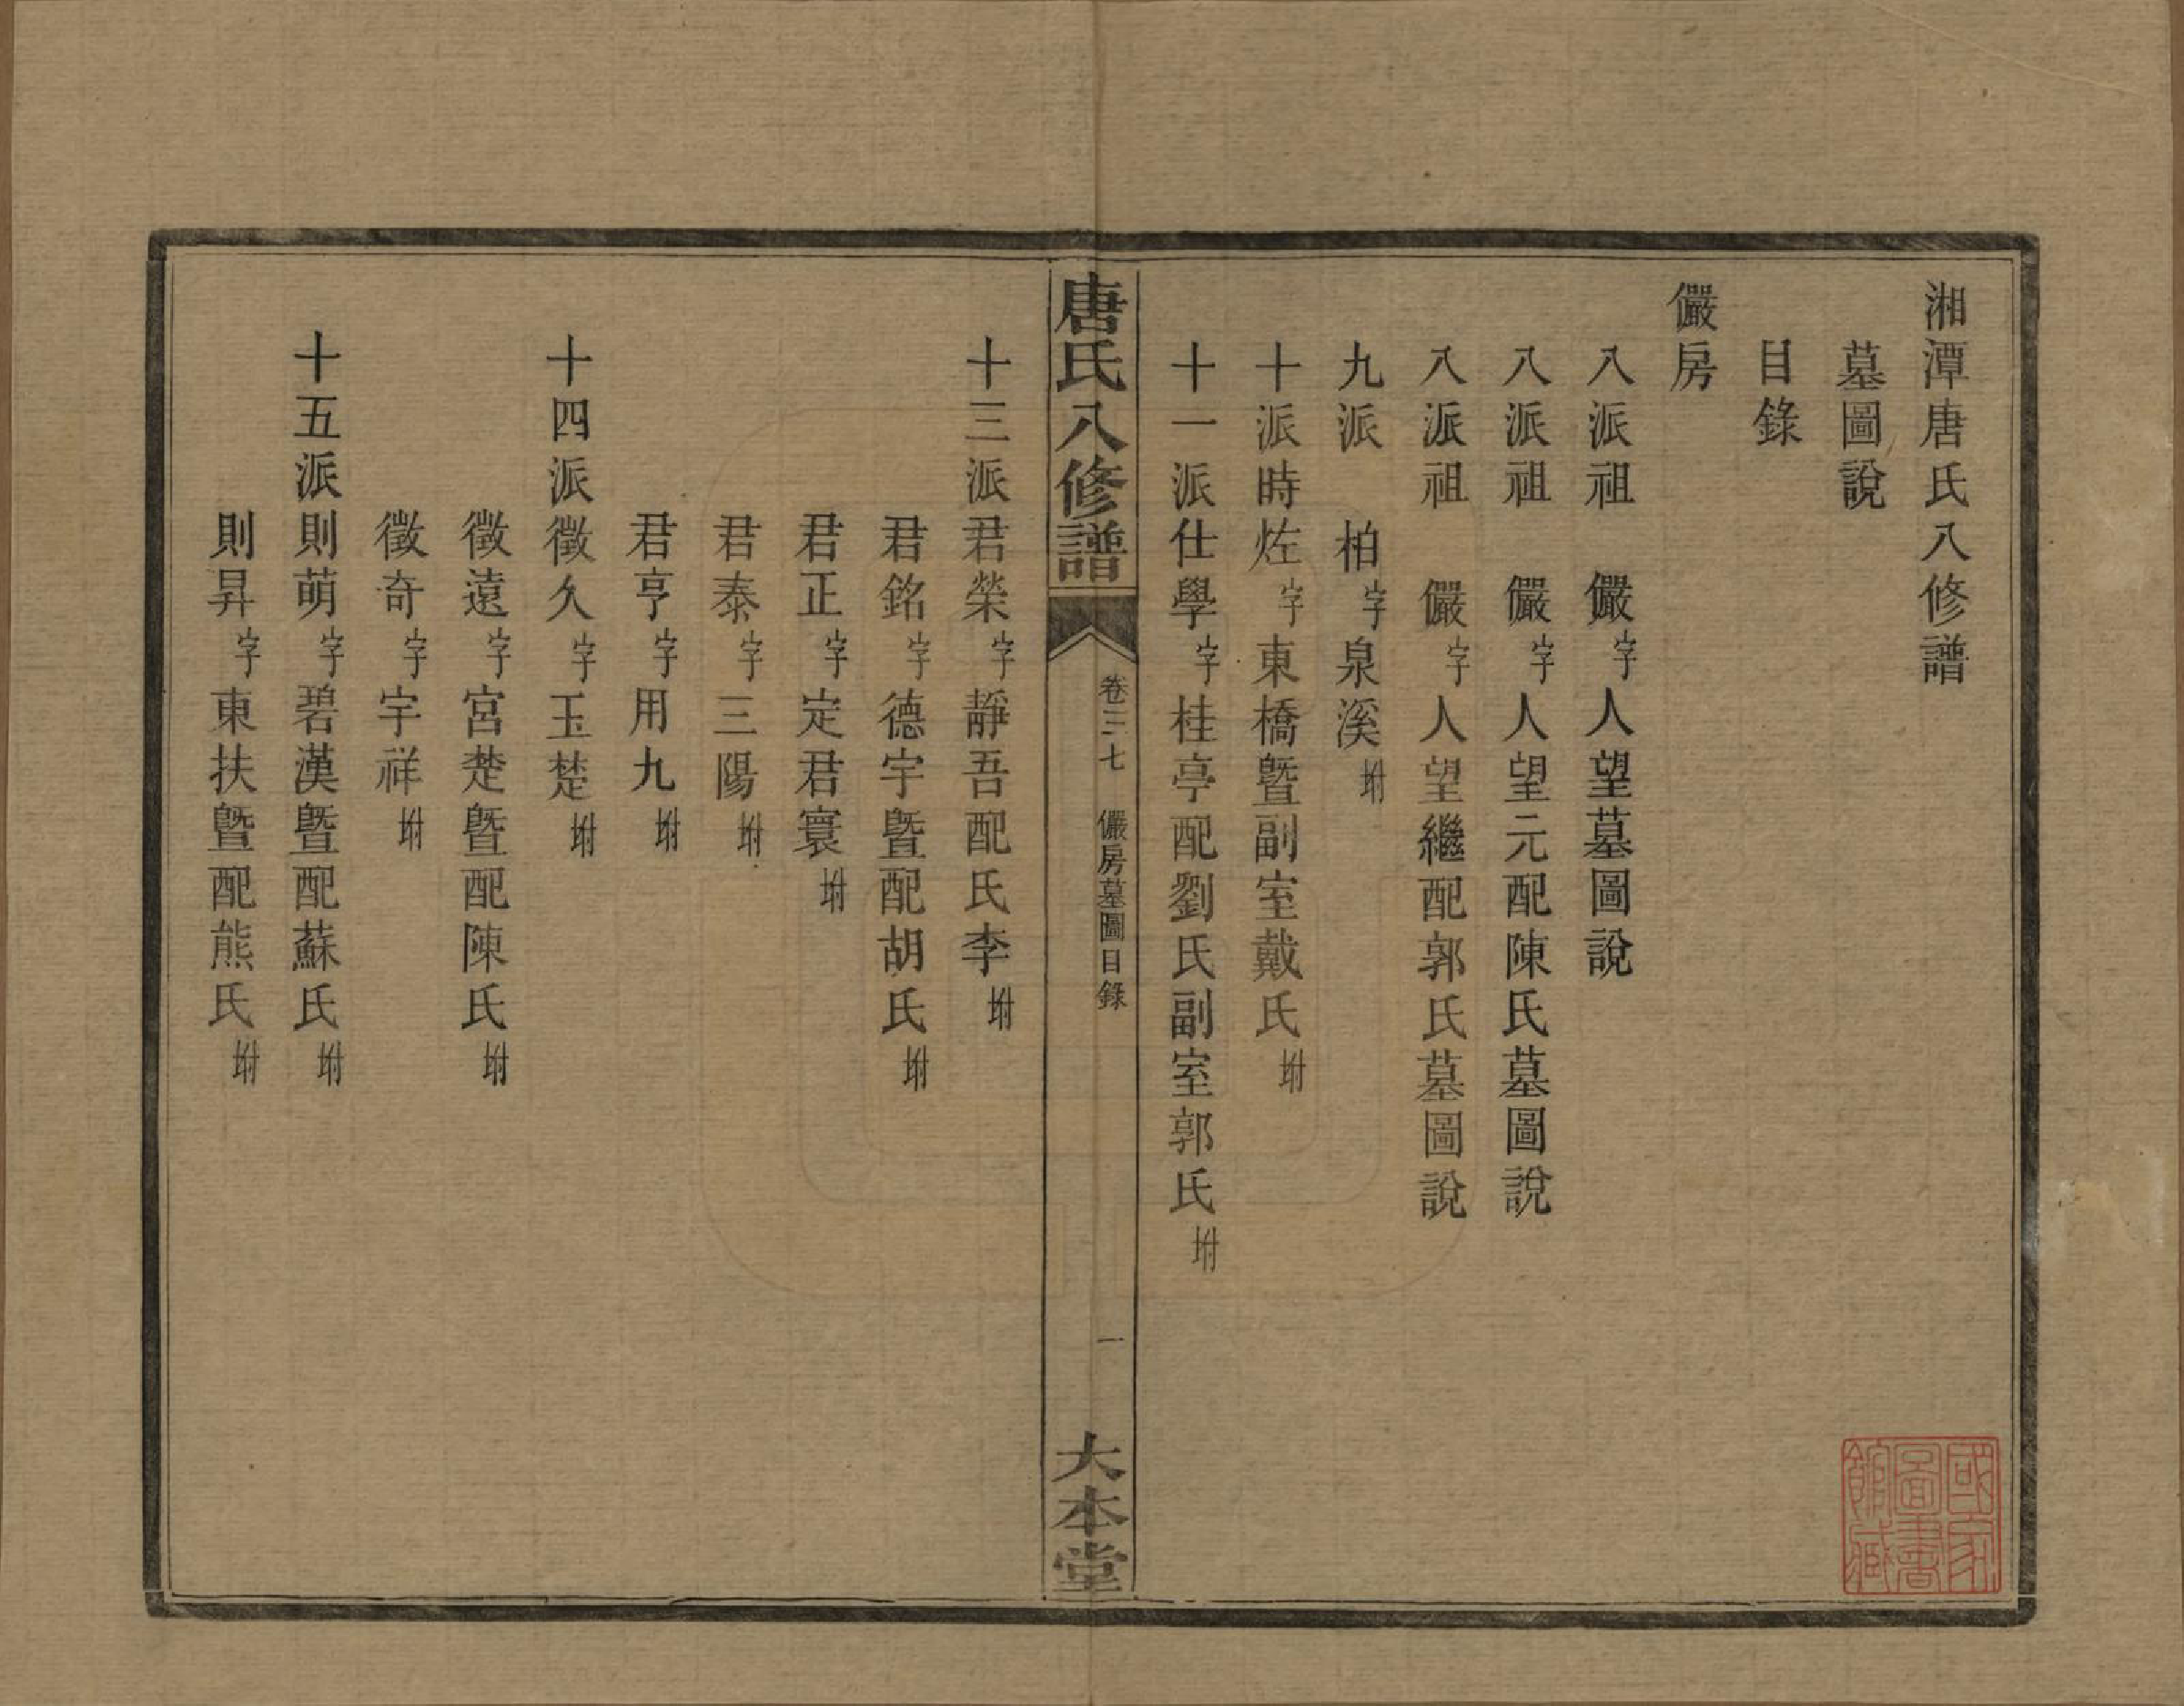 湘潭唐氏八修譜
墓圖說
目錄
儼房
八派祖　儼字人望墓圖說
八派祖　儼字人望元配陳氏墓圖說
八派祖　儼字人望繼配郭氏墓圖說
九派　柏字泉溪坿
十派時炷字東橋暨副室戴氏坿
十一派仕學字桂亭配劉氏副室郭氏坿
唐氏八修譜
卷三七　儼房墓圖目錄
一
大本堂
十三派君榮字靜吾配氏李坿
君銘字德宇暨配胡氏坿
君正字定君寰坿
君泰字三陽坿
君亨字用九坿
十四派徵久字玉楚坿
徵遠字宮楚暨配陳氏坿
徵奇字宇祥坿
十五派則萌字碧漢暨配蘇氏坿
則昇字東扶暨配熊氏坿
國家圖書館藏